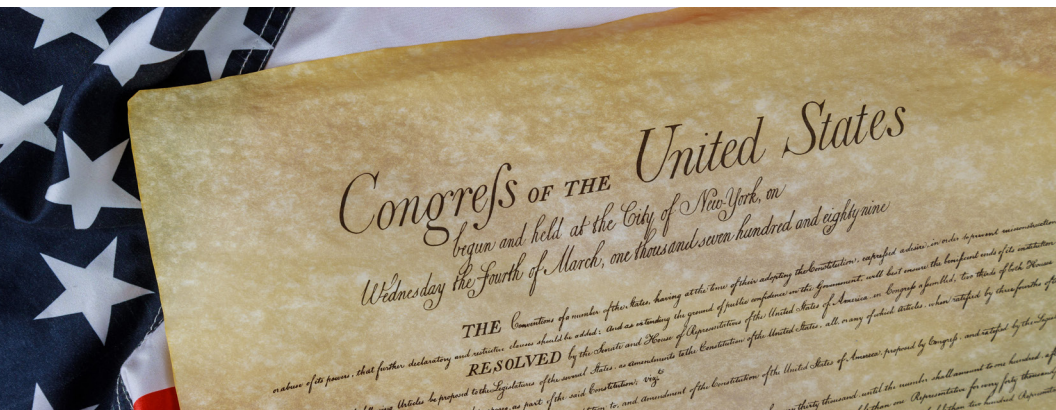 Congreſs OF THE United States
begun and held at the City of New-York, on
Wednesday the Fourth of March, one thousand seven hundred and eighty nine
THE Conventions of a number of the States, having at the time of their adopting the Constitution, expressed a desire, in order to prevent misconstruction
or abuse of its powers, that further declaratory and restrictive clauses should be added: And as extending the ground of public confidence in the Government, will best ensure the beneficent ends of its institution
RESOLVED by the Senate and House of Representatives of the United States of America, in Congreſs aſsembled, two thirds of both Houses
Articles be proposed to the Legislatures of the several States, as amendments to the Constitution of the United States, all, or any of which Articles, when ratified by three fourths of
as part of the said Constitution; vizt
to, and Amendment of the Constitution of the United States of America, proposed by Congreſs, and ratified by the
thirty thousand, until the number shall amount to one hundred,
than one Representative for every forty thousand
two hundred